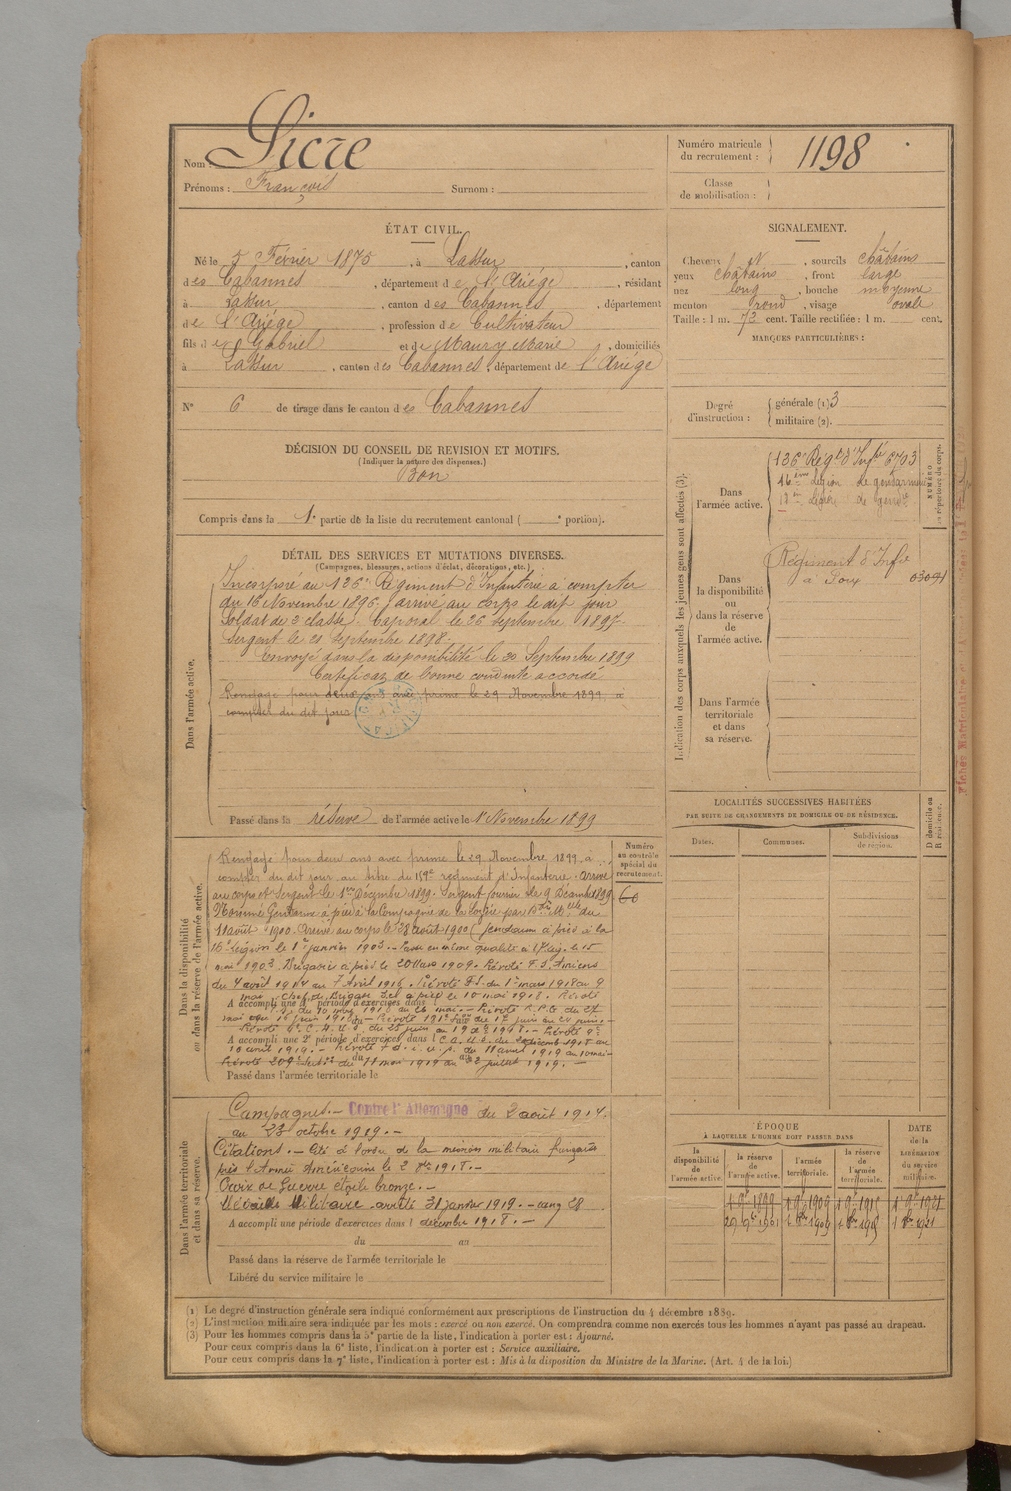 Nom : Sicre
Prénoms : François Surnom :
Numéro matricule du recrutement : 1198
Classe de mobilisation :
ÉTAT CIVIL.
Né le 5 Février 1875, à Lassur, canton
des Cabannes, département de l'Ariége, résidant
à Lassur, canton des Cabannes, département
de l'Ariége, profession de Cultivateur
fils de Gabriel et de Maury Marie, domiciliés
à Lassur, canton des Cabannes, département de l'Ariége
N° 6 de tirage dans le canton des Cabannes
SIGNALEMENT.
Cheveux et, sourcils châtains
yeux châtains, front large
nez long, bouche moyenne
menton rond, visage ovale
Taille : 1 m. 72 cent. Taille rectifiée : 1 m. cent.
MARQUES PARTICULIÈRES :
Degré d'instruction : générale (1) 3
militaire (2).
DÉCISION DU CONSEIL DE REVISION ET MOTIFS.
(Indiquer la nature des dispenses.)
Bon
Compris dans la 1e partie de la liste du recrutement cantonal ( e portion).
Indication des corps auxquels les jeunes gens sont affectés (3).
NUMÉRO au répertoire du corps.
Dans l'armée active.
136e Régt d'Infie 6703
16ème Légion de gendarmerie
Légion de gend
Dans la disponibilité ou dans la réserve de l'armée active.
Régiment d'Infie
à Foix
Dans l'armée territoriale et dans sa réserve.
DÉTAIL DES SERVICES ET MUTATIONS DIVERSES.
(Campagnes, blessures, actions d'éclat, décorations, etc.)
Dans l'armée active.
Incorporé au 136e Régiment d'Infanterie à compter
du 16 Novembre 1896, arrivé au corps le dit jour
Soldat de 2e classe. Caporal le 26 Septembre 1897.
Sergent le 21 Septembre 1898.
Envoyé dans la disponibilité le 20 Septembre 1899
Certificat de bonne conduite accordé
Rengagé pour deux avec prime le 29 Novembre 1899 à
compter du dit jour
Passé dans la réserve de l'armée active le 1er Novembre 1899
LOCALITÉS SUCCESSIVES HABITÉES
PAR SUITE DE CHANGEMENTS DE DOMICILE OU DE RÉSIDENCE.
Dates. Communes. Subdivisions de région. D domicile ou R résidence.
Dans la disponibilité ou dans la réserve de l'armée active.
Numéro au contrôle spécial du recrutement.
60
Rengagé pour deux ans avec prime le 29 Novembre 1899 à
compter du dit jour au titre du 159e régiment d'Infanterie. Arrivé
au corps et Sergent le 1er Décembre 1899. Sergent fourrier le 9 Décembre 1899.
Nommé Gendarme à pied à la Compagnie de la par Don Mlle du
11 août 1900. Arrivé au corps le 28 août 1900 (gendarme à pied à la
16e Légion le 1er janvier 1903. Passé en même qualité à le 15
mai 1903. Brigadier à pied le 20 Mars 1909. Prévôté
du 4 août 1914 au 7 Avril 1916. Prévôté du 1er mars 1918 au 9
mai. Chef de Brigade à pied le 10 mai 1918. Prévôté
A accompli une 1re période d'exercices dans l
du 10 mai 1918 au 26 mai. Prévôté
Prévôté C.A.U.S. du 25 juin au 19
A accompli une 2e période d'exercices dans l C.A.U.S.
10 avril 1919. du 11 avril 1919 au 10 mai
Prévôté 209e du 11 mai 1919 au 2 juillet 1919.
Passé dans l'armée territoriale le
Dans l'armée territoriale et dans sa réserve.
Campagnes. Contre l'Allemagne du 2 août 1914
au 23 octobre 1919.
Citations. Cité à l'ordre de la mission militaire française
près l'Armée Américaine le 2 1918.
Croix de Guerre étoile bronze.
Médaille Militaire arrêté 31 janvier 1919. rang 28
A accompli une période d'exercices dans l décembre 1918.
du au
Passé dans la réserve de l'armée territoriale le
Libéré du service militaire le
ÉPOQUE
À LAQUELLE L'HOMME DOIT PASSER DANS
la disponibilité de l'armée active. la réserve de l'armée active. l'armée territoriale. la réserve de l'armée territoriale.
DATE de la LIBÉRATION du service militaire.
1 9e 1899 1 9e 1909 1 9e 1915 1 9e 1921
29 9e 1901
(1) Le degré d'instruction générale sera indiqué conformément aux prescriptions de l'instruction du 4 décembre 1889.
(2) L'instruction militaire sera indiquée par les mots : exercé ou non exercé. On comprendra comme non exercés tous les hommes n'ayant pas passé au drapeau.
(3) Pour les hommes compris dans la 5e partie de la liste, l'indication à porter est : Ajourné.
Pour ceux compris dans la 6e liste, l'indication à porter est : Service auxiliaire.
Pour ceux compris dans la 7e liste, l'indication à porter est : Mis à la disposition du Ministre de la Marine. (Art. 4 de la loi.)